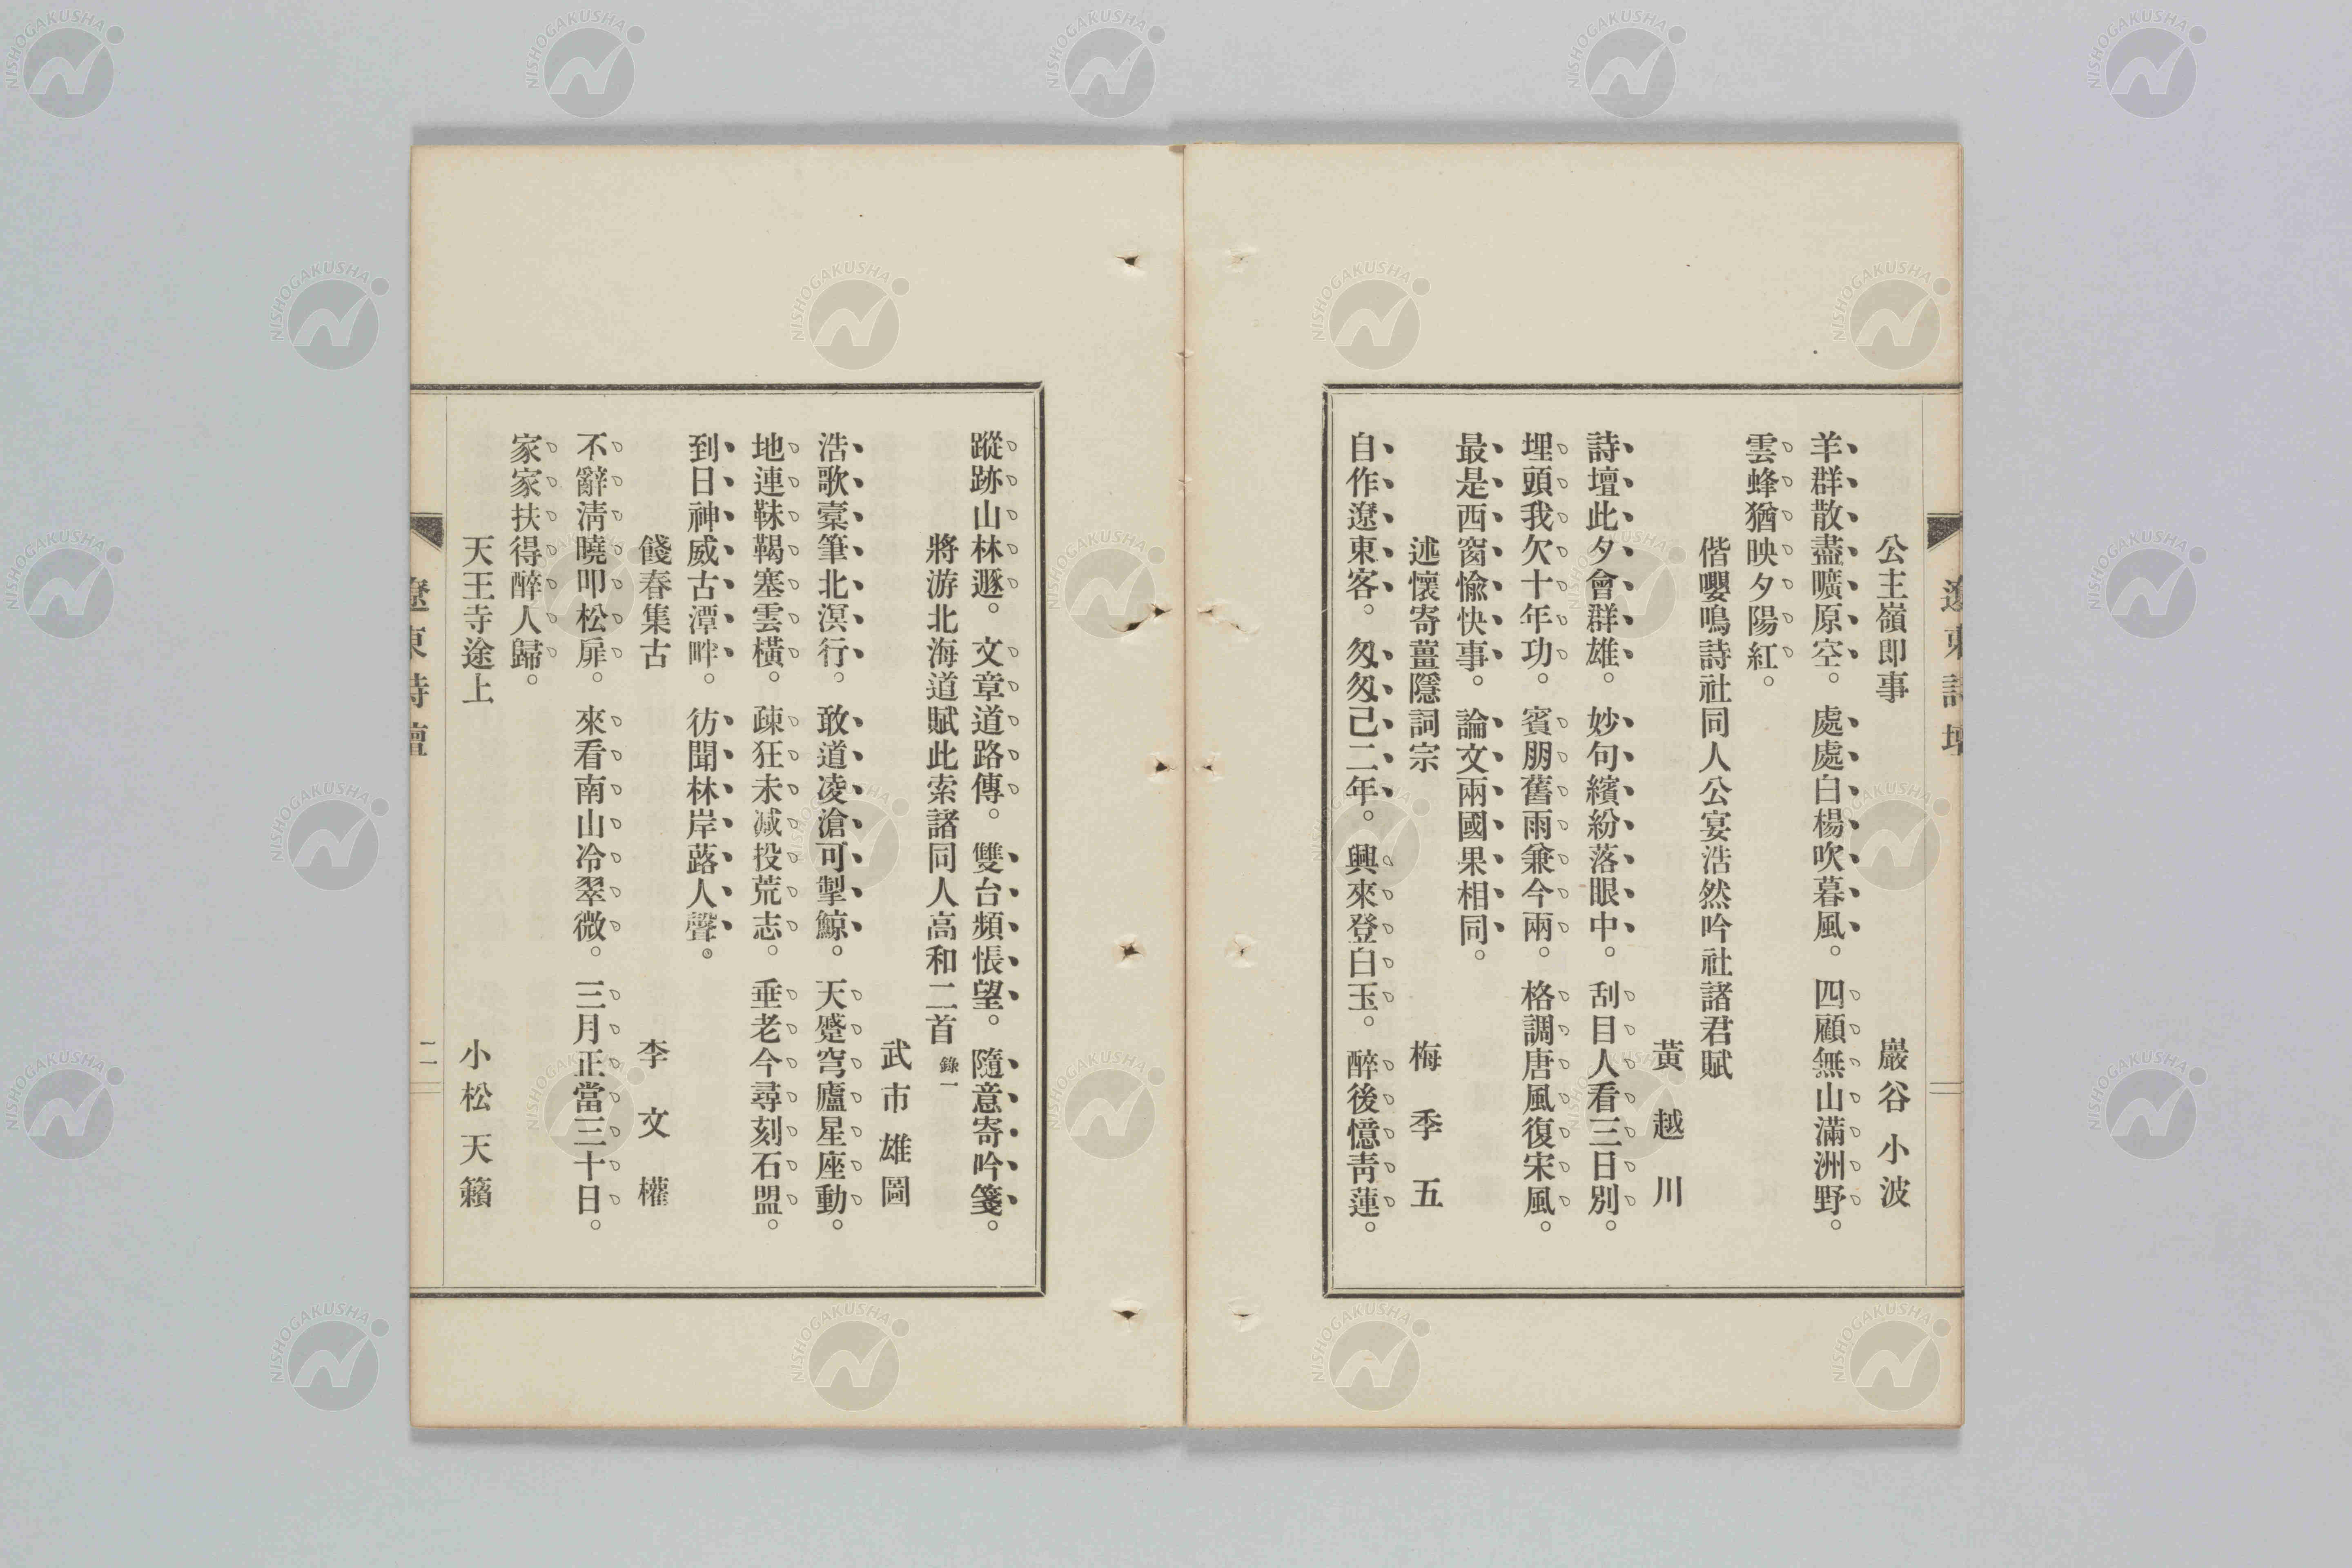 公主嶺即事 巖谷小波
羊群散盡曠原空。處處白楊吹暮風。四顧無山滿洲野。
雲蜂猶映夕陽紅。
偕嚶鳴詩社同人公宴浩然吟社諸君賦
黃越川
詩壇此夕會群雄。妙句繽紛落眼中。刮目人看三日別。
埋頭我欠十年功。賓朋舊雨兼今雨。格調唐風復宋風。
最是西窗愉快事。論文兩國果相同。
述懷寄薑隱詞宗 梅季五
自作遼東客。匆匆已二年。興來登白玉。醉後憶靑蓮。
遼東詩壇
蹤跡山林遯。文章道路傳。雙台頻悵望。隨意寄吟箋。
將游北海道賦此索諸同人高和二首 錄一
武市雄圖
浩歌橐筆北溟行。敢道凌滄可掣鯨。天蹙穹廬星座動。
地連靺鞨塞雲橫。疎狂未减投荒志。垂老今尋刻石盟。
到日神威古潭畔。彷聞林岸蕗人聲。
餞春集古 李文權
不辭淸曉叩松扉。來看南山冷翠微。三月正當三十日。
家家扶得醉人歸。
天王寺途上 小松天籟
遼東詩壇 二
NISHOGAKUSHA